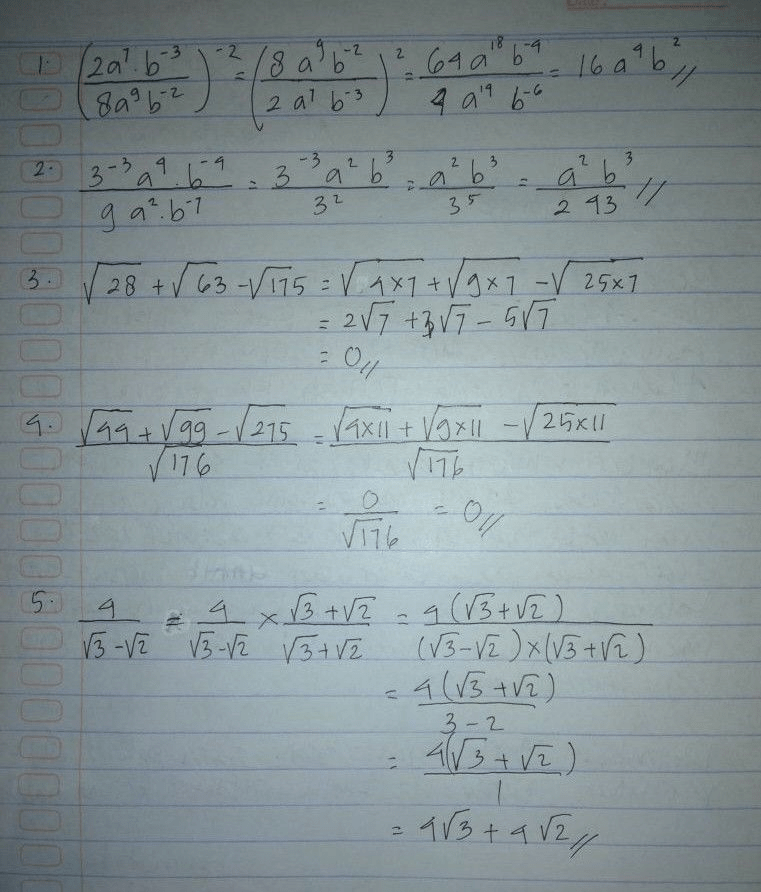 1. (2a⁷·b⁻³ / 8a⁹b⁻²)⁻² = (8a⁹b⁻² / 2a⁷b⁻³)² = 64a¹⁸b⁻⁴ / 4a¹⁴b⁻⁶ = 16a⁴b² //
2. 3⁻³a⁴·b⁻⁴ / 9a²·b⁻⁷ = 3⁻³a²b³ / 3² = a²b³ / 3⁵ = a²b³ / 243 //
3. √28 + √63 - √175 = √4×7 + √9×7 - √25×7
= 2√7 + 3√7 - 5√7
= 0 //
4. √44 + √99 - √275 / √176 = √4×11 + √9×11 - √25×11 / √176
= 0 / √176 = 0 //
5. 4 / √3-√2 = 4 / √3-√2 × √3+√2 / √3+√2 = 4(√3+√2) / (√3-√2)×(√3+√2)
= 4(√3+√2) / 3-2
= 4(√3+√2) / 1
= 4√3 + 4√2 //